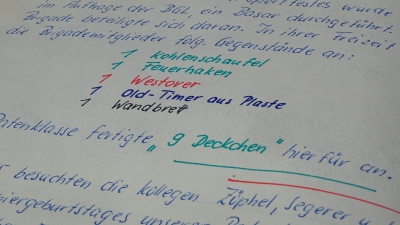 wurde
im Auftrage der BGL, ein Basar durchgeführt.
Brigade beteiligte sich daran. In ihrer Freizeit
die Brigademitglieder folg. Gegenstände an:
1 Kohlenschaufel
1 Feuerhaken
1 Westover
1 Old-Timer aus Plaste
1 Wandbrett
Patenklasse fertigte „9 Deckchen" hierfür an.
besuchten die Kollegen Züphel, Segerer u.
geburtstages unserer